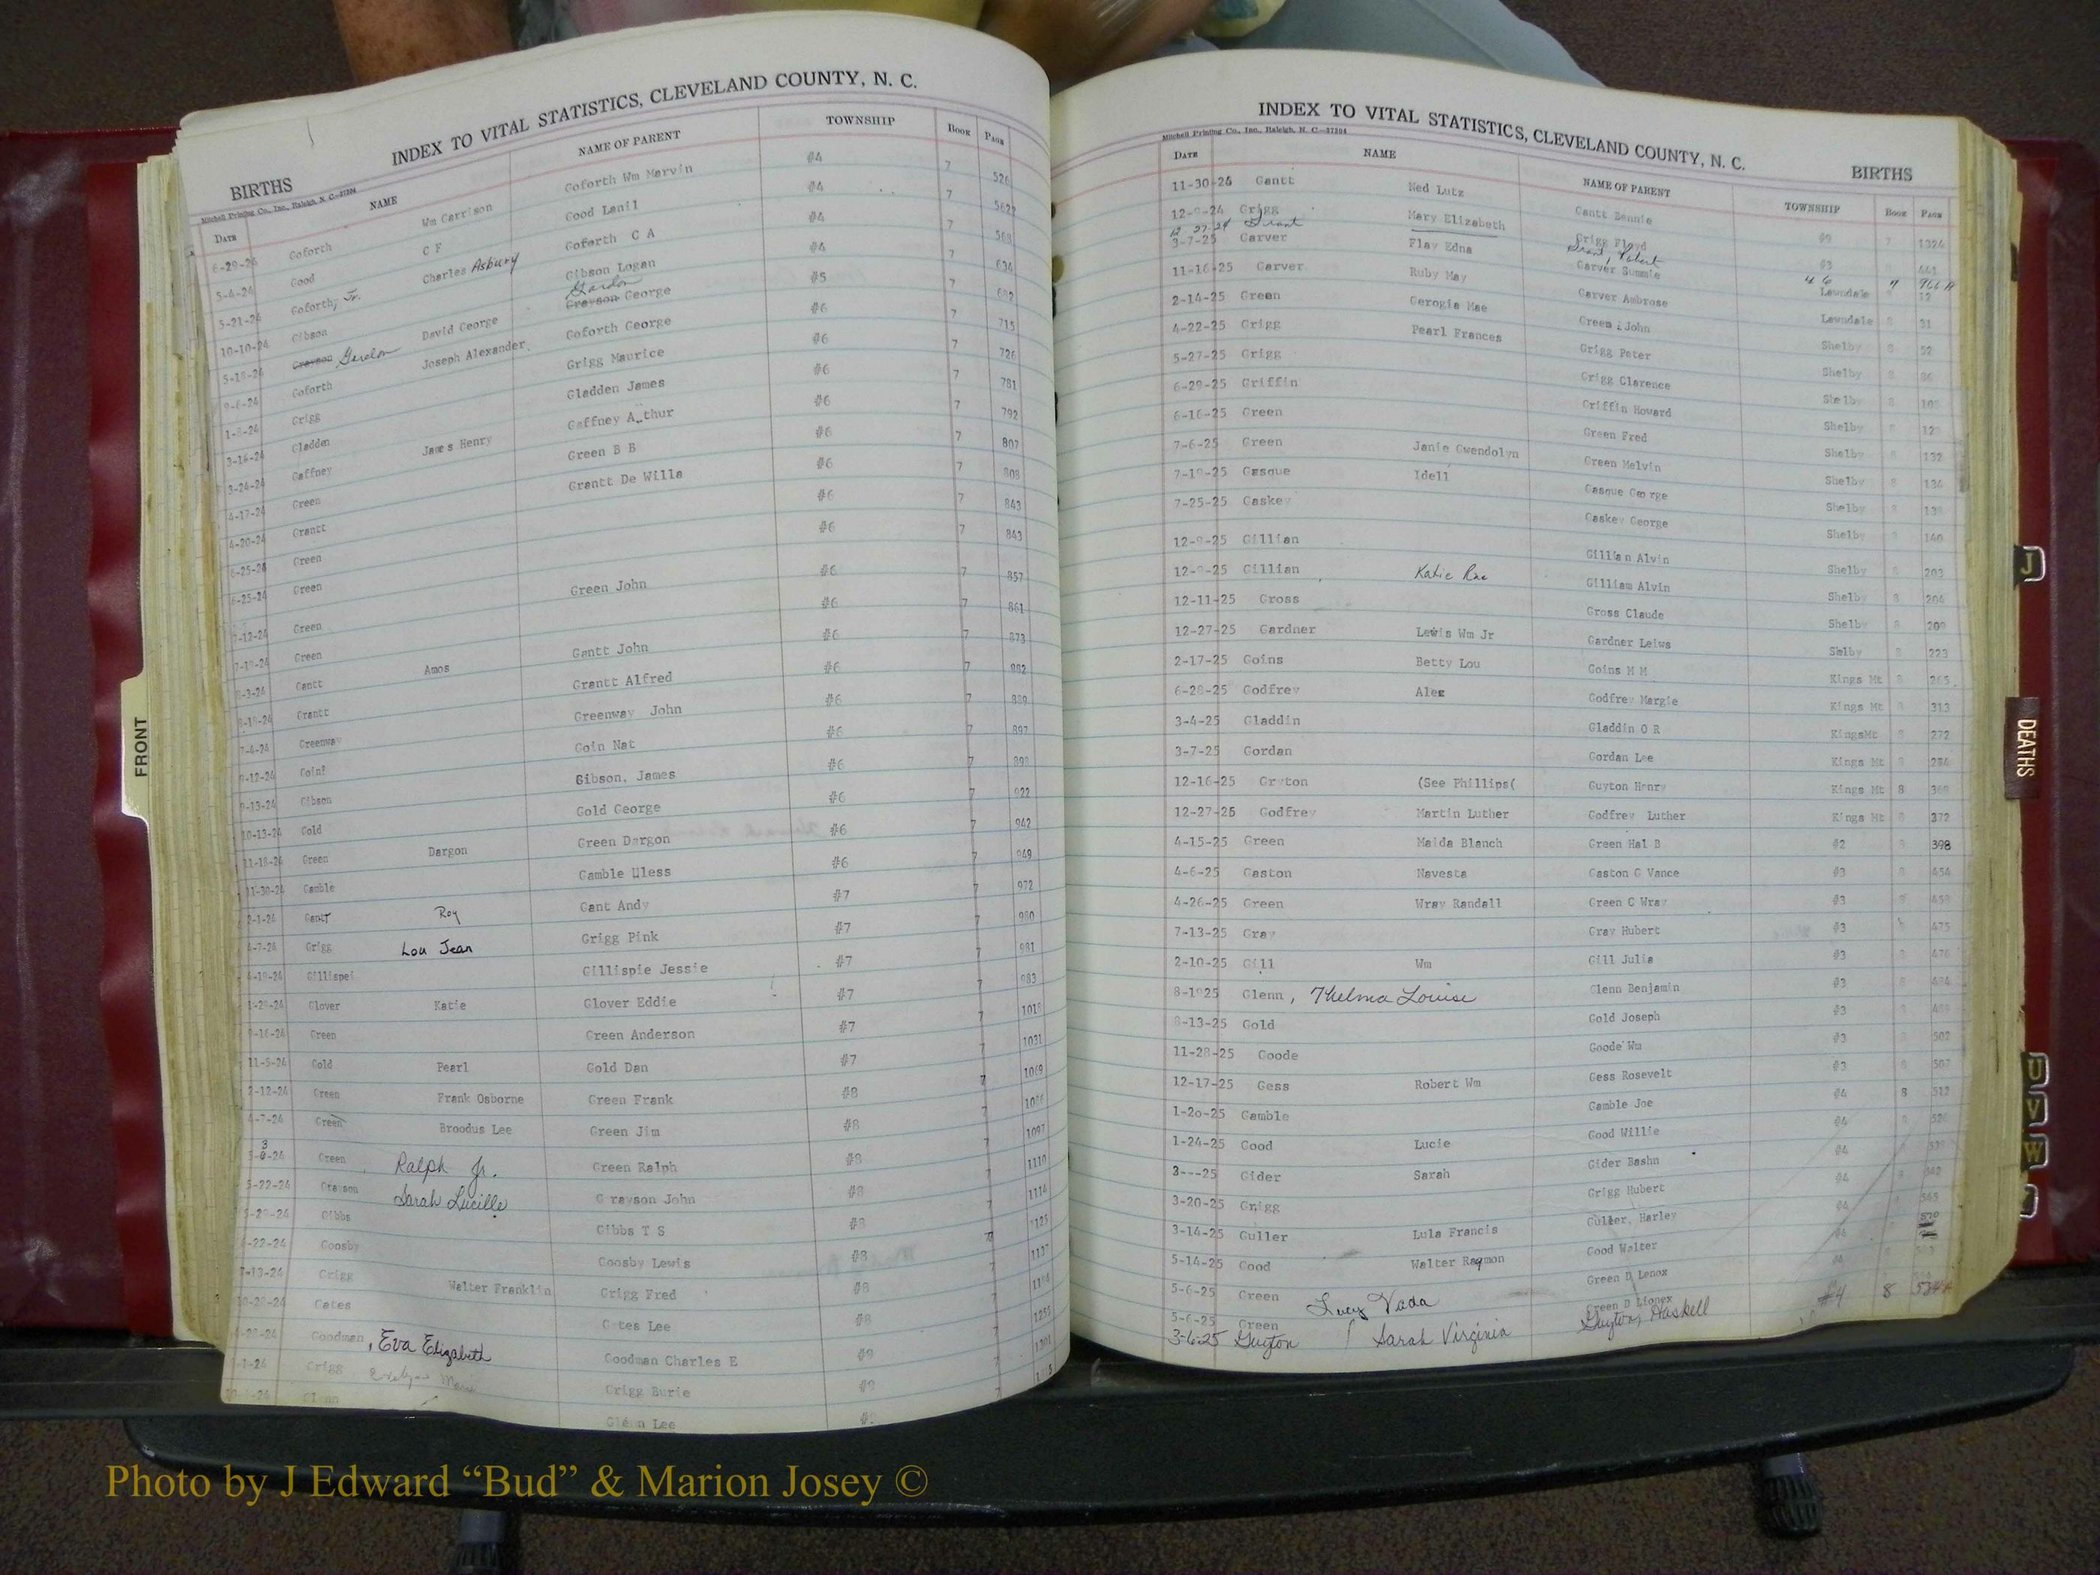 INDEX TO VITAL STATISTICS, CLEVELAND COUNTY, N. C.
BIRTHS
Mitchell Printing Co., Inc., Raleigh, N. C.—27204
DATE NAME NAME OF PARENT TOWNSHIP BOOK PAGE
6-29-24 Goforth Wm Garrison Goforth Wm Marvin #4 7 526
5-4-24 Good C F Good Lanil #4 7
5-21-24 Goforth, Jr. Charles Asbury Goforth C A #4 7 568
10-10-24 Gibson Gibson Logan #4 7 634
5-18-24 Grayson Gordon David George Gordon Grayson George #5 7 682
9-6-24 Goforth Joseph Alexander Goforth George #6 7 715
1-8-24 Grigg Grigg Maurice #6 7 726
3-16-24 Gladden Gladden James #6 7 781
3-24-24 Gaffney James Henry Gaffney A thur #6 7 792
4-17-24 Green Green B B #6 7 807
4-20-24 Grantt Grantt De Willa #6 7 808
6-25-24 Green #6 7 843
6-25-24 Green #6 7 843
7-12-24 Green Green John #6 7 857
7-19-24 Green #6 7 861
Gantt Amos Gantt John #6 7 873
Grantt Grantt Alfred #6 7 882
7-4-24 Greenway Greenway John #6 7 889
9-12-24 Goin Goin Nat #6 7 897
9-13-24 Gibson Gibson, James #6 7 898
10-13-24 Gold Gold George #6 7 922
11-18-24 Green Dargon Green Dargon #6 7 942
11-30-24 Gamble Gamble Uless #6 7 949
2-1-24 Gant Roy Gant Andy #7 7 972
4-7-24 Grigg Lou Jean Grigg Pink #7 7 980
Gillispei Gillispie Jessie #7 7 981
Glover Katie Glover Eddie #7 7 983
9-16-24 Green Green Anderson #7 7 1018
11-5-24 Gold Pearl Gold Dan #7 7 1031
2-12-24 Green Frank Osborne Green Frank #8 7 1069
4-7-24 Green Broodus Lee Green Jim #8
Green Ralph Jr. Green Ralph #8 7 1097
5-22-24 Grayson Sarah Lucille Grayson John #8 7 1110
Gibbs Gibbs T S #8 7 1114
6-22-24 Goosby Goosby Lewis #8
7-13-24 Grigg Walter Franklin Grigg Fred #8 7
Gates Gates Lee #8
Goodman, Eva Elizabeth Goodman Charles E #9
Grigg Evelyn Marie Grigg Burie #9
Glenn Glenn Lee
FRONT
INDEX TO VITAL STATISTICS, CLEVELAND COUNTY, N. C.
BIRTHS
Mitchell Printing Co., Inc., Raleigh, N. C.—27204
DATE NAME NAME OF PARENT TOWNSHIP BOOK PAGE
11-30-24 Gantt Ned Lutz Gantt Bennie #9 7 1324
12-9-24 Grigg Mary Elizabeth Grigg Floyd #3 441
12 27-24 Grant Grant, Robert 4 6 7 966 A
3-7-25 Garver Flay Edna Garver Summie Lawndale 12
11-16-25 Garver Ruby May Garver Ambrose Lawndale 8 31
2-14-25 Green Gerogia Mae Green, John Shelby 8 52
4-22-25 Grigg Pearl Frances Grigg Peter Shelby 8
5-27-25 Grigg Grigg Clarence Shelby 8
6-29-25 Griffin Griffin Howard Shelby 8
6-16-25 Green Green Fred Shelby 8 132
7-6-25 Green Janie Gwendolyn Green Melvin Shelby 8 134
7-19-25 Gasque Idell Gasque George Shelby 8
7-25-25 Gaskey Gaskey George Shelby 8 140
12-9-25 Gillian Gillian Alvin Shelby 8 203
12-9-25 Gillian Katie Rae Gilliam Alvin Shelby 8 204
12-11-25 Gross Gross Claude Shelby 8 209
12-27-25 Gardner Lewis Wm Jr Gardner Leiws Shelby 8 223
2-17-25 Goins Betty Lou Goins M M Kings Mt 8 265
6-28-25 Godfrey Alex Godfrey Margie Kings Mt 8 313
3-4-25 Gladdin Gladdin O R KingsMt 8 272
3-7-25 Gordan Gordan Lee Kings Mt 8 284
12-16-25 Gryton (See Phillips( Guyton Henry Kings Mt 8 369
12-27-25 Godfrey Martin Luther Godfrey Luther Kings Mt 8 372
4-15-25 Green Maida Blanch Green Hal B #2 8 398
4-6-25 Gaston Navesta Gaston G Vance #3 8 454
4-26-25 Green Wray Randall Green C Wray #3 8 458
7-13-25 Gray Gray Hubert #3 8 475
2-10-25 Gill Wm Gill Julia #3 8 476
8-1925 Glenn, Thelma Louise Glenn Benjamin #3 8 484
8-13-25 Gold Gold Joseph #3 8
11-28-25 Goode Goode Wm #3 8 502
12-17-25 Gess Robert Wm Gess Rosevelt #3 8 507
1-20-25 Gamble Gamble Joe #4 8 512
1-24-25 Good Lucie Good Willie #4
3---25 Gider Sarah Gider Bashn #4
3-20-25 Grigg Grigg Hubert #4
3-14-25 Guller Lula Francis Guller, Harley #4
5-14-25 Good Walter Raymon Good Walter #4
5-6-25 Green Lucy Vada Green D Lenox
5-6-25 Green Green D Lionex
3-6-25 Guyton Sarah Virginia Guyton, Haskell #4 8 534A
J
DEATHS
U
V
W
Photo by J Edward “Bud” & Marion Josey ©